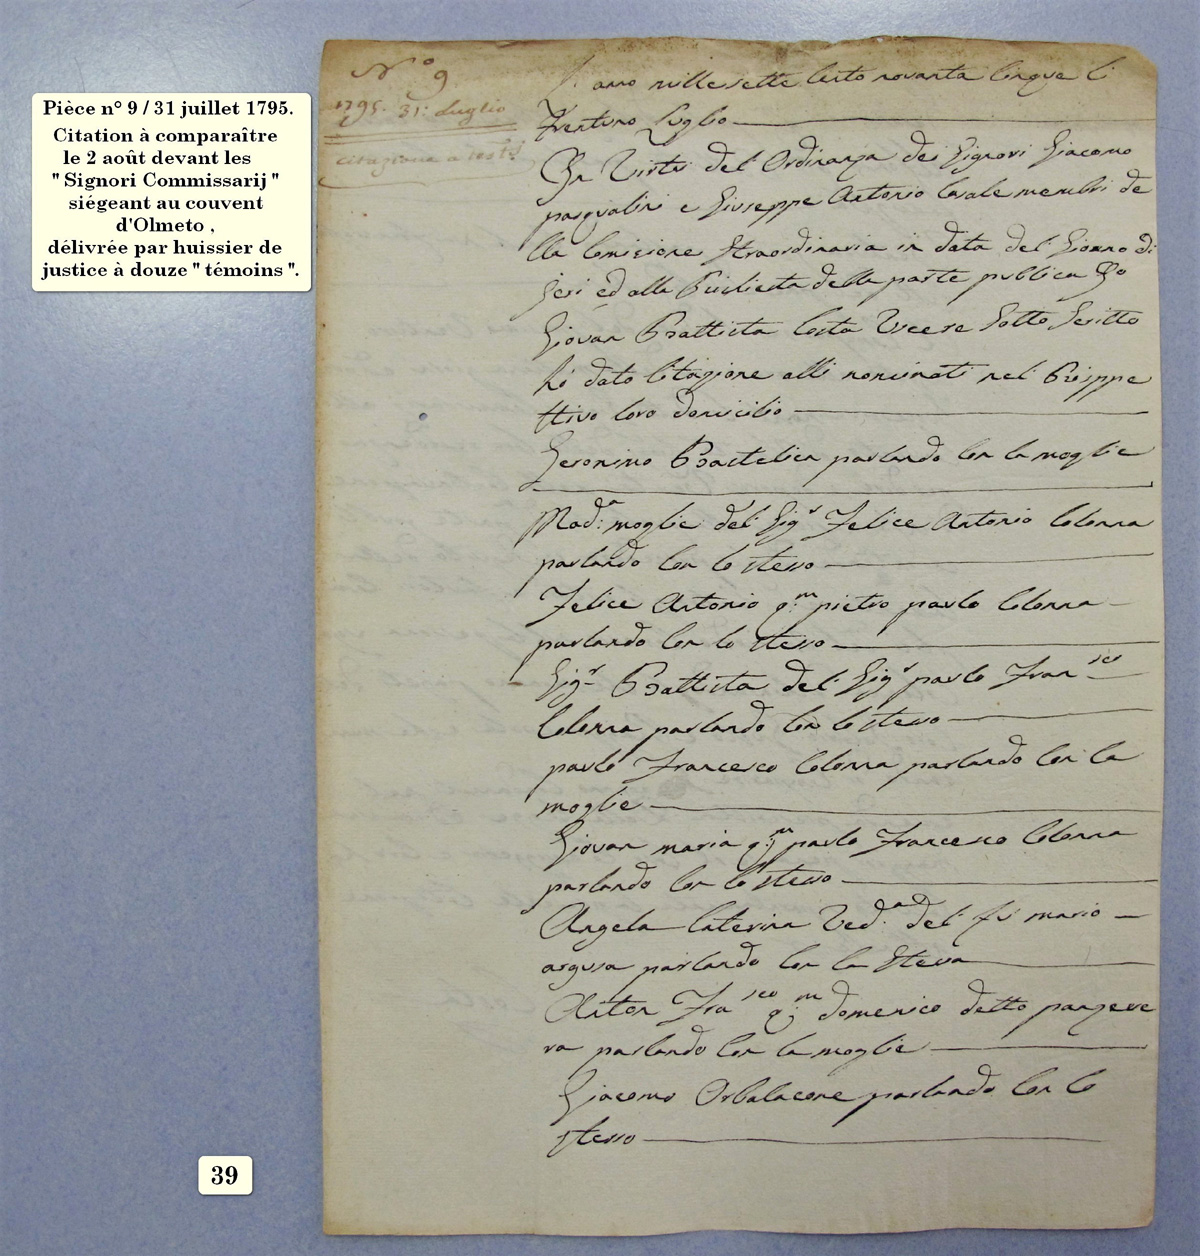 Pièce n° 9 / 31 juillet 1795.
Citation à comparaître
le 2 août devant les
" Signori Commissarij "
siégeant au couvent
d'Olmeto ,
délivrée par huissier de
justice à douze " témoins ".
N° 9
1795. 31: Luglio
citazione a test:j
L'anno mille sette cento novanta cinque li
Trentuno Luglio
In Virtù del Ordinanza dei Signori Giacomo
pasqualini e Giuseppe Antonio Casale membri de
lla Comisione straordinaria in data del Giorno di
jeri ed alla Richiesta della parte publica Io
Giovan Battista Costa Usciere Sotto Scritto
hò dato Citazione alli nominati nel Risppe
ttivo loro domicilio
Geronimo Bastelica parlando con la moglie
Mad:a moglie del Sig.r Felice Antonio Colonna
parlando con lo stesso
Felice Antonio q:m pietro paulo Colonna
parlando con lo stesso
Sig.r Battista del Sig.r paulo Fran.sco
Colonna parlando con lo stesso
paulo Francesco Colonna parlando con la
moglie
Giovan maria q:m paulo Francesco Colonna
parlando con lo stesso
Angela Caterina Ved:a del fù mario
argusa parlando con la stessa
Anton Fra.sco q:m domenico detto panzeve
ra parlando con la moglie
Giacomo Orbalacone parlando con lo
stesso
39